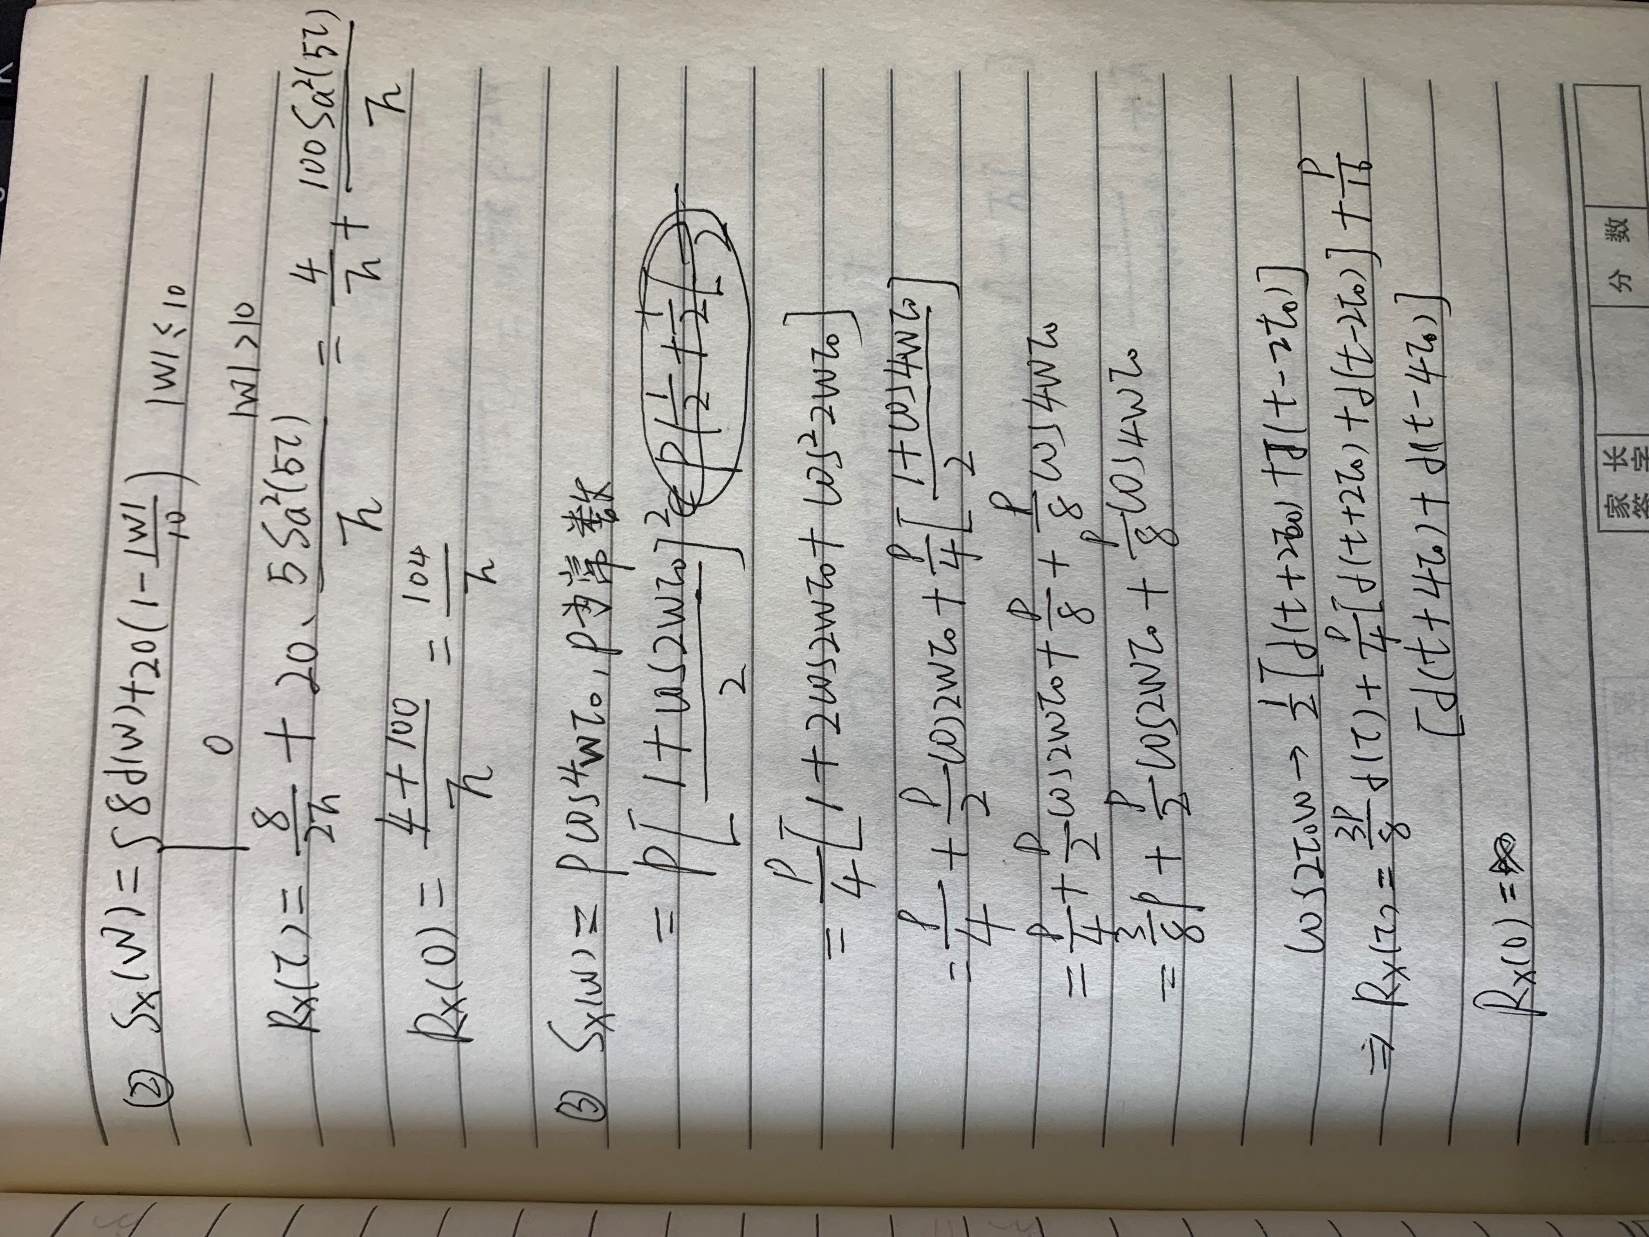 (2) Sx(w) = { 8δ(w)+20(1-|w|/10) |w|≤10
0 |w|>10
Rx(τ) = 8/2π + 20·5Sa²(5τ)/π = 4/π + 100Sa²(5τ)/π
Rx(0) = 4+100/π = 104/π
(3) Sx(w) = pcos⁴wτ₀, p为常数
= p[1+cos2wτ₀/2]²
= p/4[1+2cos2wτ₀+cos²2wτ₀]
= p/4 + p/2cos2wτ₀ + p/4[1+cos4wτ₀/2]
= p/4 + p/2cos2wτ₀ + p/8 + p/8cos4wτ₀
= 3/8p + p/2cos2wτ₀ + p/8cos4wτ₀
cos2τ₀w → 1/2[δ(t+2τ₀)+δ(t-2τ₀)]
⇒ Rx(τ) = 3p/8δ(τ) + p/4[δ(t+2τ₀)+δ(t-2τ₀)] + p/16
[δ(t+4τ₀)+δ(t-4τ₀)]
Rx(0) = ∞
家长
签字
分 数